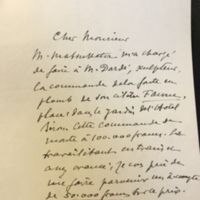 Cher Monsieur
M. Matsukata m'a chargé
de faire à M. Dardé, sculpteur,
la commande de la fonte en
plomb de son citen Faune,
placé dans le jardin de l'Hotel
Biron. Cette commande se
monte à 100.000 francs. Le
travail étant en train
ay avancé, je vous prie de
me faire parvenir un acompte
de 50.000 francs sur le prix.